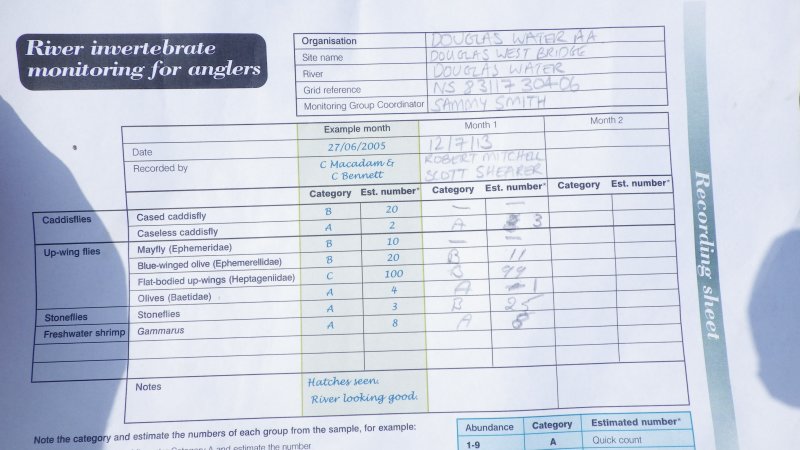 River invertebrate
monitoring for anglers
Organisation DOUGLAS WATER AA
Site name DOUGLAS WEST BRIDGE
River DOUGLAS WATER
Grid reference NS 83117 30406
Monitoring Group Coordinator SAMMY SMITH
Example month Month 1 Month 2
Date 27/06/2005 12/7/13
Recorded by C Macadam & ROBERT MITCHELL
C Bennett SCOTT SHEARER
Category Est. number* Category Est. number* Category Est. number*
Caddisflies Cased caddisfly B 20 — —
Caseless caddisfly A 2 A 3
Up-wing flies Mayfly (Ephemeridae) B 10 — —
Blue-winged olive (Ephemerellidae) B 20 B 11
Flat-bodied up-wings (Heptageniidae) C 100 B 99
Olives (Baetidae) A 4 A 1
Stoneflies Stoneflies A 3 B 25
Freshwater shrimp Gammarus A 8 A
Notes Hatches seen.
River looking good.
Recording sheet
Note the category and estimate the numbers of each group from the sample, for example:
A and estimate the number
Abundance Category Estimated number*
1-9 A Quick count